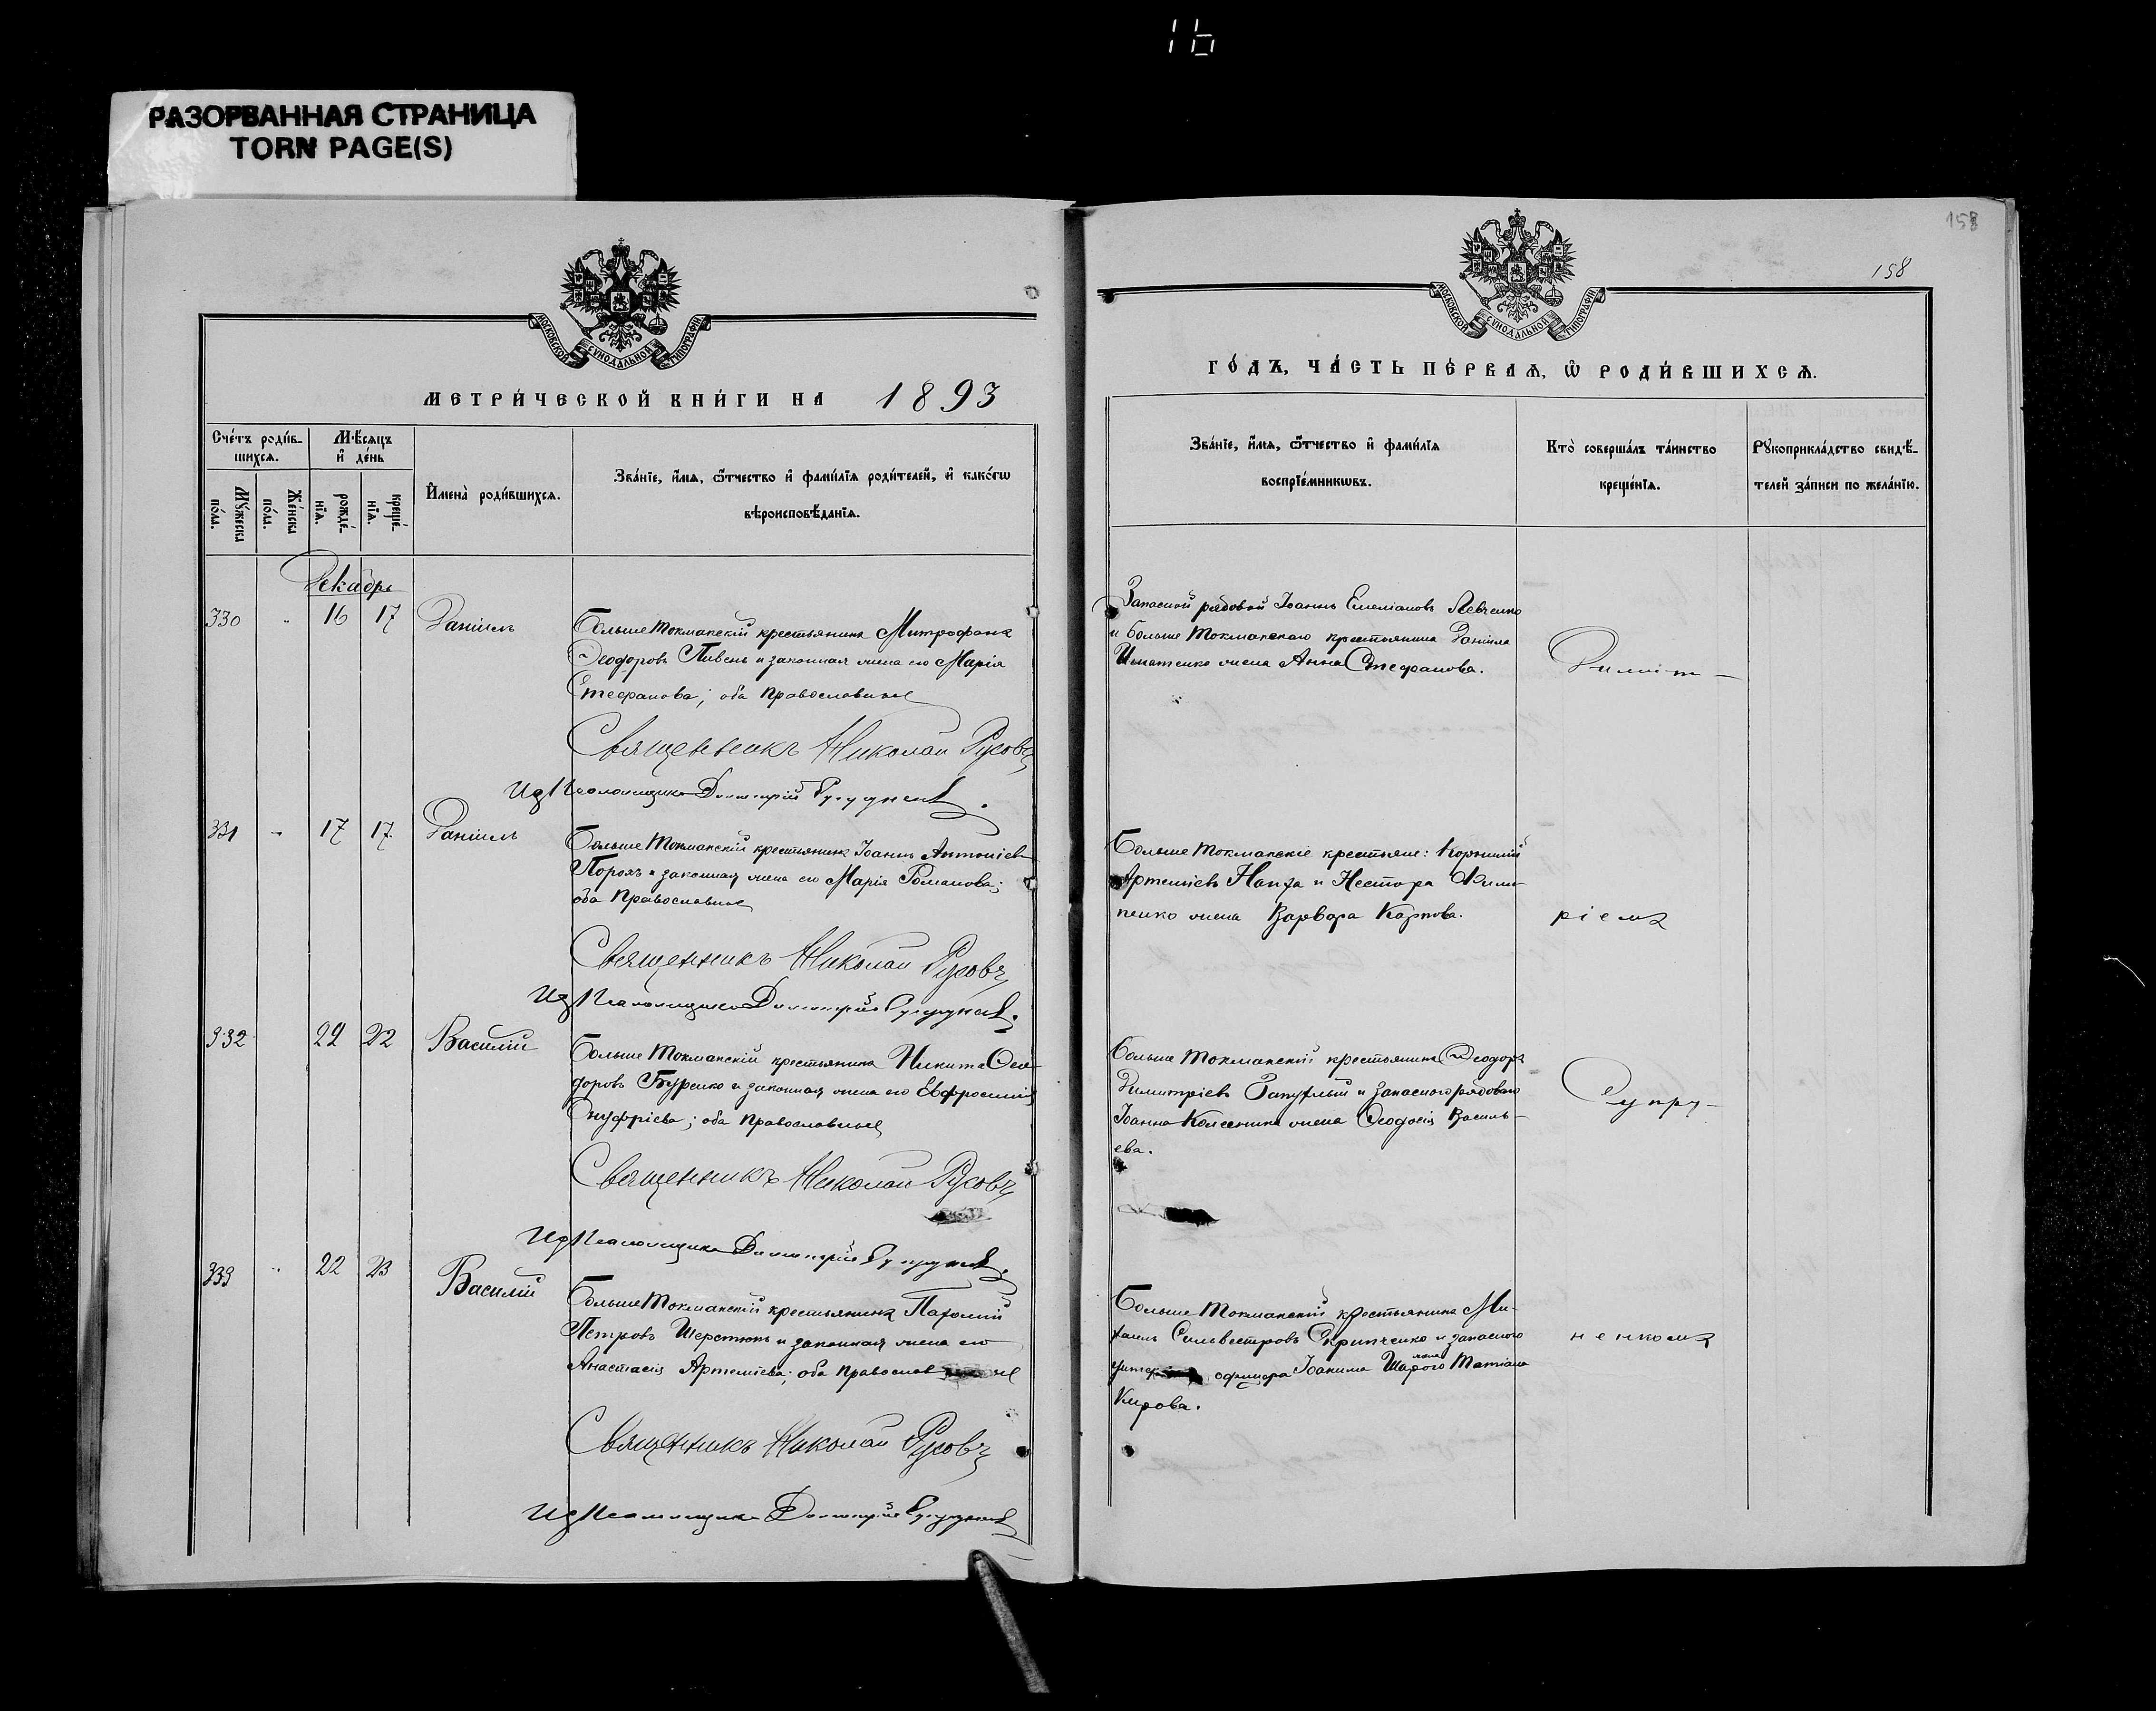 16
РАЗОРВАННАЯ СТРАНИЦА
TORN PAGE(S)
МОСКОВСКОЙ СУНОДАЛЬНОЙ ТИПОГРАФІИ
МЕТРИ́ЧЕСКОЙ КНИ́ГИ НА 1893
Сче́тъ роди́в-
шихсѧ.
Мѣ́сѧцъ
и҆ де́нь
Мꙋ́жеска
по́ла.
Же́нска
по́ла.
рожде́-
нїѧ.
креще́-
нїѧ.
И҆мена̀ роди́вшихсѧ.
Зва́нїе, и҆́мѧ, ѻ҆́тчество и҆ фами́лїѧ роди́телей, и҆ како́гѡ
вѣроисповѣ́данїѧ.
Декабрь
330 " 16 17 Даніилъ
Больше Токмакскій крестьянинъ Митрофанъ
Ѳеодоровъ Пивень и законная жена его Марія
Стефанова; оба православные
Священникъ Николай Русовъ
Ид Псаломщика Димитрій
331 " 17 17 Даніилъ
Больше Токмакскій крестьянинъ Іоаннъ Антоніевъ
Порохъ и законная жена его Марія Романова;
оба православные
Священникъ Николай Русовъ
Ид Псаломщика Димитрій
332 22 22 Василій
Больше Токмакскій крестьянинъ Никита Ѳео-
доровъ Буренко и законная жена его Евфросинія
Онуфріева; оба православные
Священникъ Николай Русовъ
Ид Псаломщика Димитрій
333 " 22 23 Василій
Больше Токмакскій крестьянинъ Пафомій
Петровъ Шерстюкъ и законная жена его
Анастасія Артеміева; оба православ ные
Священникъ Николай Русовъ
Ид Псаломщика Димитрій
158
158
МОСКОВСКОЙ СУНОДАЛЬНОЙ ТИПОГРАФІИ
ГО́ДЪ, ЧА́СТЬ ПЕ́РВАѦ, Ѡ҆ РОДИ́ВШИХСѦ.
Зва́нїе, и҆́мѧ, ѻ҆́тчество и҆ фами́лїѧ
воспрїе́мникѡвъ.
Кто̀ соверша́лъ та́инство
креще́нїѧ.
Рꙋкоприкла́дство свидѣ́-
телей за́писи по жела́нїю.
Запасной рядовой Іоаннъ Емеліановъ Левченко
и Больше Токмакскаго крестьянина Даніила
Игнатенко жена Анна Стефанова.
Димит-
Больше Токмакскіе крестьяне: Корнилій
Артеміевъ и Нестора Фили-
пенко жена Варвара Карпова.
ріемъ
Больше Токмакскій крестьянинъ Ѳеодоръ
Димитріевъ и запаснаго рядоваго
Іоанна Колесника жена Ѳеодосія Василь-
ева.
Супру-
Больше Токмакскій крестьянинъ Ми-
хаилъ Сильвестровъ Скрипченко и запаснаго
унтеръ офицера Іоакима Шарого жена Татіана
Кирова.
ненкомъ